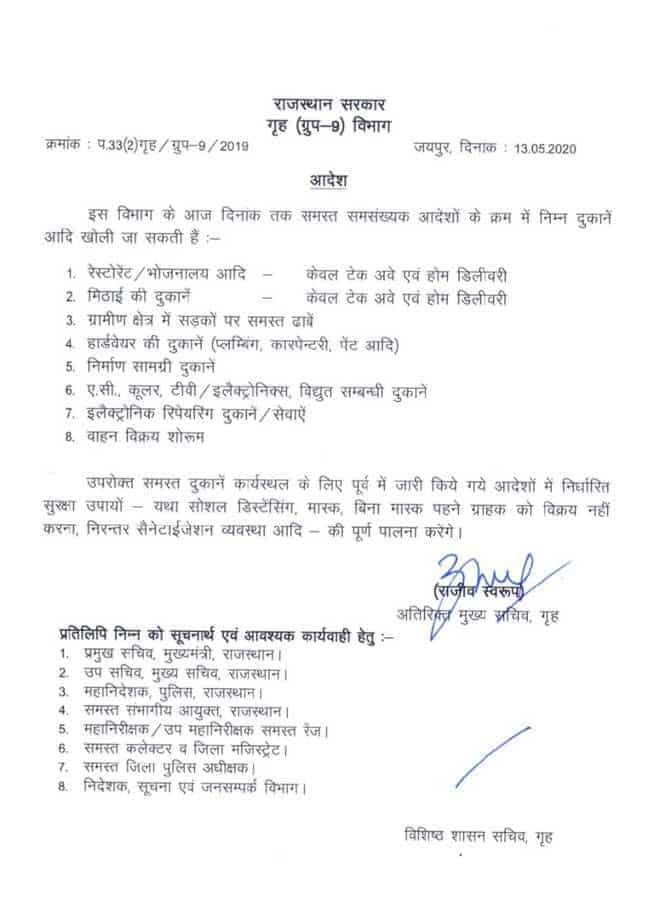 राजस्थान सरकार
गृह (ग्रुप–9) विभाग
क्रमांक : प.33(2)गृह/ग्रुप–9/2019 जयपुर, दिनांक : 13.05.2020
आदेश
इस विभाग के आज दिनांक तक समस्त समसंख्यक आदेशों के क्रम में निम्न दुकानें
आदि खोली जा सकती हैं :–
1. रेस्टोरेंट/भोजनालय आदि – केवल टेक अवे एवं होम डिलीवरी
2. मिठाई की दुकानें – केवल टेक अवे एवं होम डिलीवरी
3. ग्रामीण क्षेत्र में सड़कों पर समस्त ढाबें
4. हार्डवेयर की दुकानें (प्लम्बिंग, कारपेन्टरी, पेंट आदि)
5. निर्माण सामग्री दुकानें
6. ए.सी., कूलर, टीवी/इलैक्ट्रोनिक्स, विद्युत सम्बन्धी दुकानें
7. इलैक्ट्रोनिक रिपेयरिंग दुकानें/सेवाऐं
8. वाहन विक्रय शोरूम
उपरोक्त समस्त दुकानें कार्यस्थल के लिए पूर्व में जारी किये गये आदेशों में निर्धारित
सुरक्षा उपायों – यथा सोशल डिस्टेंसिंग, मास्क, बिना मास्क पहने ग्राहक को विक्रय नहीं
करना, निरन्तर सैनेटाईजेशन व्यवस्था आदि – की पूर्ण पालना करेंगे।
(राजीव स्वरूप)
अतिरिक्त मुख्य सचिव, गृह
प्रतिलिपि निम्न को सूचनार्थ एवं आवश्यक कार्यवाही हेतु :–
1. प्रमुख सचिव, मुख्यमंत्री, राजस्थान।
2. उप सचिव, मुख्य सचिव, राजस्थान।
3. महानिदेशक, पुलिस, राजस्थान।
4. समस्त संभागीय आयुक्त, राजस्थान।
5. महानिरीक्षक/उप महानिरीक्षक समस्त रेंज।
6. समस्त कलेक्टर व जिला मजिस्ट्रेट।
7. समस्त जिला पुलिस अधीक्षक।
8. निदेशक, सूचना एवं जनसम्पर्क विभाग।
विशिष्ठ शासन सचिव, गृह